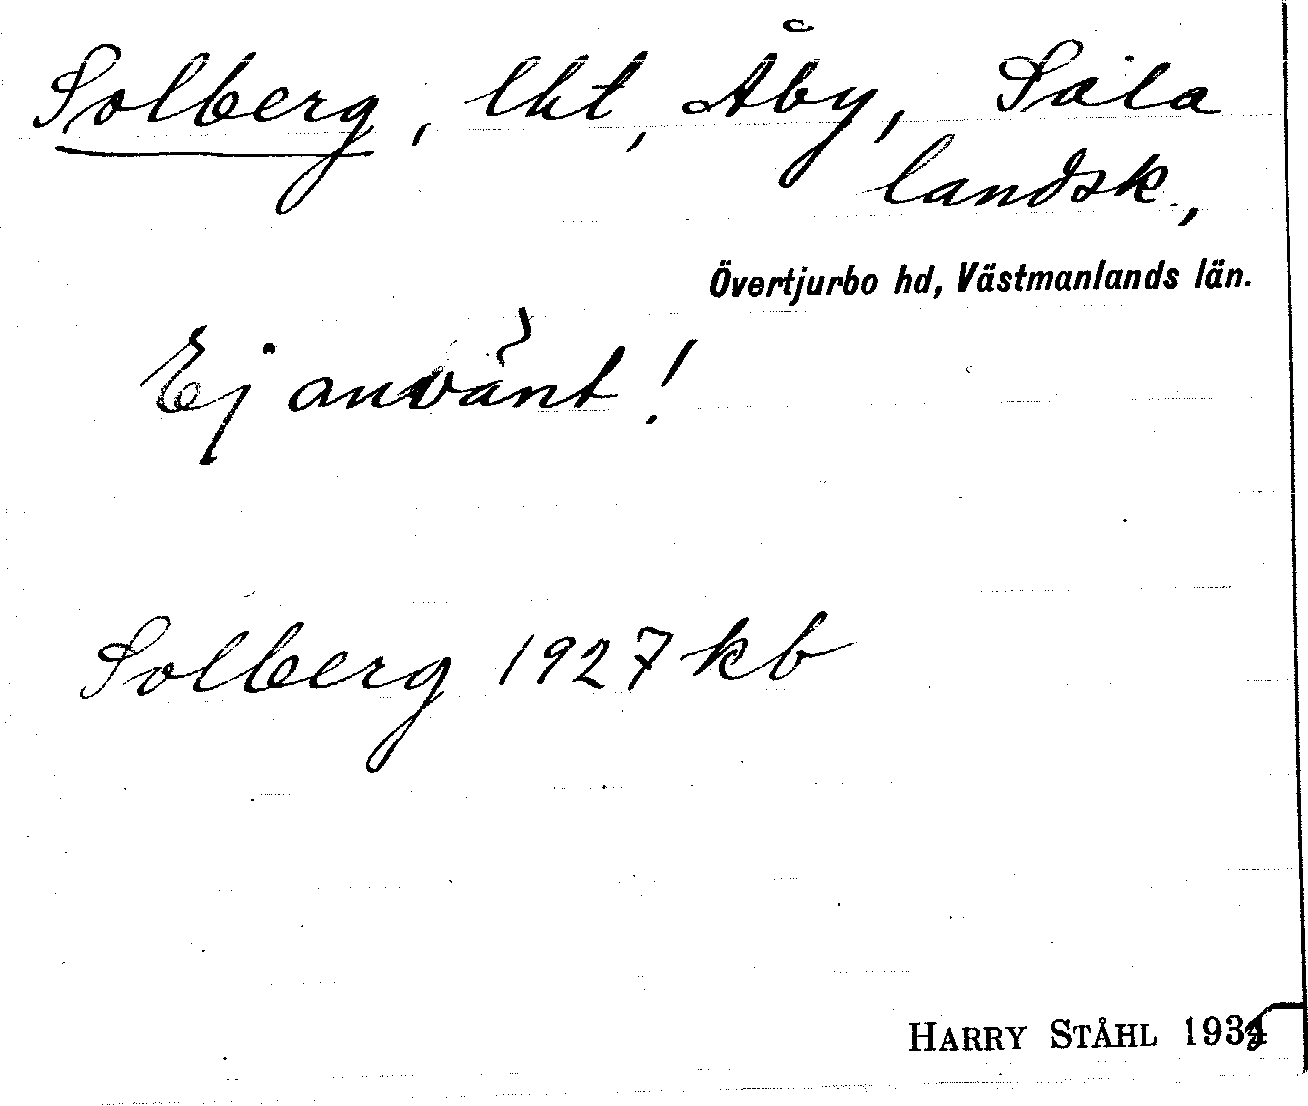 Solberg, lht, Åby, Sala
landsk.,
Övertjurbo hd, Västmanlands län.
Ej använt!
Solberg 1927 kb
HARRY STÅHL 193